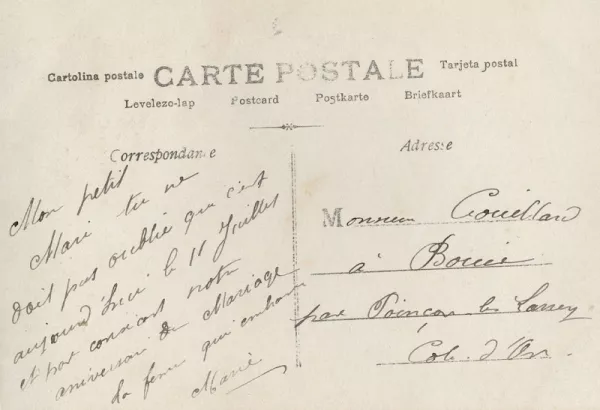 Cartolina postale CARTE POSTALE Tarjeta postal
Levelezo-lap Postcard Postkarte Briefkaart
Correspondance
Mon petit
Mari tu ne
doit pas oublié que c'est
aujourd'hui le 11 Juillet
et par consicant notre
aniversair de Mariage
ta feme qui embrasse
Marie
Adresse
Monsieur Gouillard
à
par Poinçon les Larrey
Cote. d'Or.